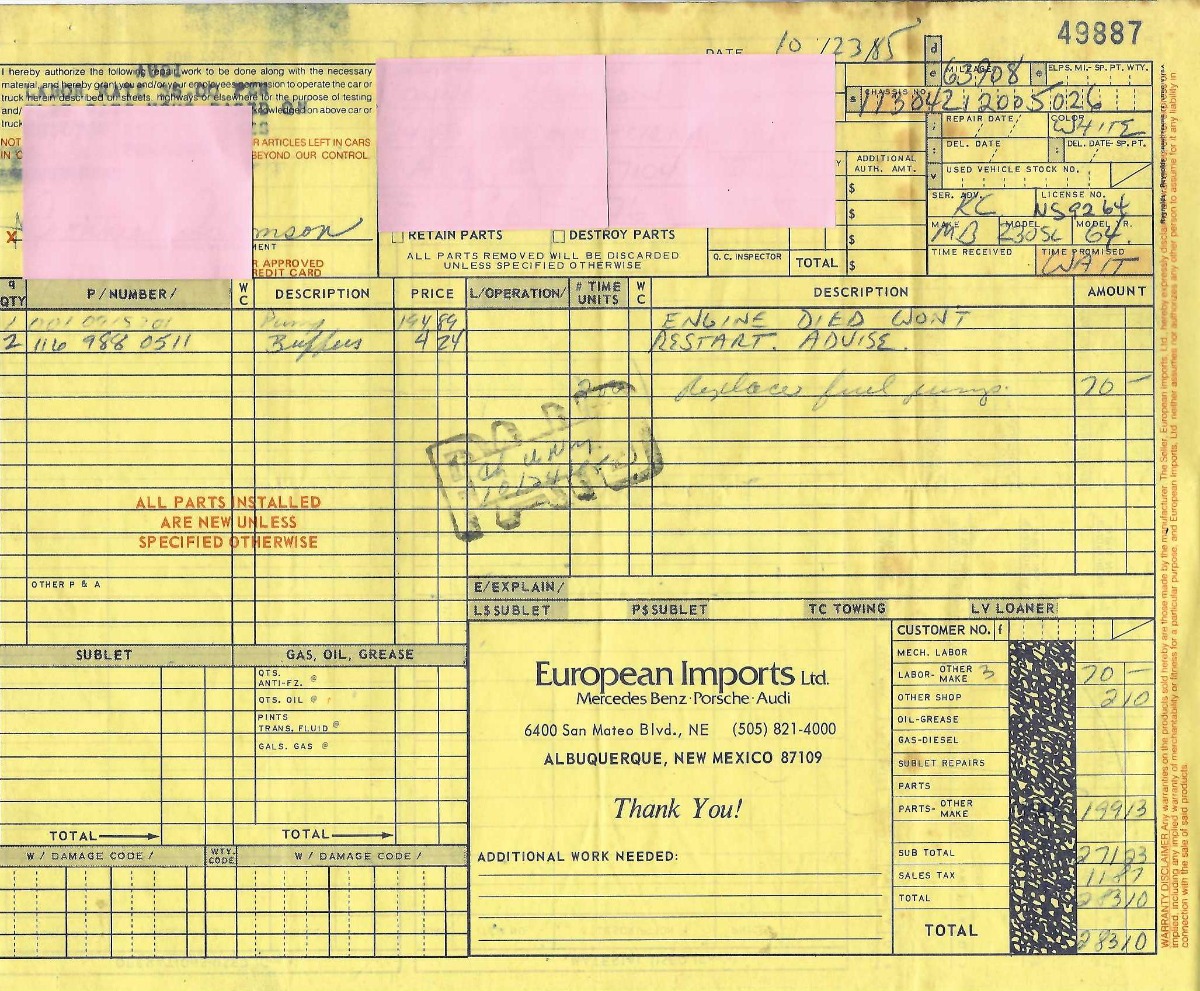 49887
DATE 10/23/85
I hereby authorize the following repair work to be done along with the necessary
material, and hereby grant you and/or your employees permission to operate the car or
truck herein described on streets, highways or elsewhere for the purpose of testing
and/
truck
NOT R ARTICLES LEFT IN CARS
IN C BEYOND OUR CONTROL
X mson
MENT
R APPROVED
REDIT CARD
RETAIN PARTS DESTROY PARTS
ALL PARTS REMOVED WILL BE DISCARDED
UNLESS SPECIFIED OTHERWISE
Q.C. INSPECTOR TOTAL $
ADDITIONAL
AUTH. AMT.
$
$
$
MILEAGE 63908 ELPS. MI.- SP. PT. WTY.
CHASSIS NO. 11304212005026
REPAIR DATE COLOR WHITE
DEL. DATE DEL. DATE- SP. PT.
USED VEHICLE STOCK NO.
SER. ADV. KC LICENSE NO. NS9264
MAKE MB MODEL 230SL MODEL YR. 64
TIME RECEIVED TIME PROMISED WAIT
QTY P/NUMBER/ WC DESCRIPTION PRICE L/OPERATION/ # TIME UNITS WC DESCRIPTION AMOUNT
1 001 091 Pump 194 89 ENGINE DIED WONT
2 116 988 0511 Buffers 4 24 RESTART. ADVISE.
200 Replaces fuel pump. 70 –
PAID
ALL PARTS INSTALLED
ARE NEW UNLESS
SPECIFIED OTHERWISE
OTHER P & A
E/EXPLAIN/
L$SUBLET P$SUBLET TC TOWING LV LOANER
SUBLET GAS, OIL, GREASE
QTS. ANTI-FZ. @
QTS. OIL @
PINTS TRANS. FLUID @
GALS. GAS @
TOTAL TOTAL
W/ DAMAGE CODE / WTY. CODE W/ DAMAGE CODE /
European Imports Ltd.
Mercedes Benz·Porsche·Audi
6400 San Mateo Blvd., NE (505) 821-4000
ALBUQUERQUE, NEW MEXICO 87109
Thank You!
ADDITIONAL WORK NEEDED:
CUSTOMER NO. f
MECH. LABOR
LABOR- OTHER MAKE 3 70 –
OTHER SHOP 2 10
OIL-GREASE
GAS-DIESEL
SUBLET REPAIRS
PARTS
PARTS- OTHER MAKE 199 13
SUB TOTAL 271 23
SALES TAX 11 87
TOTAL 283 10
TOTAL 283 10
WARRANTY DISCLAIMER Any warranties on the products sold hereby are those made by the manufacturer. The Seller, European Imports, Ltd., hereby expressly disclaims
implied, including any implied warranty of merchantability or fitness for a particular purpose, and European Imports, Ltd. neither assumes nor authorizes any other person to assume for it any liability in
connection with the sale of said products.